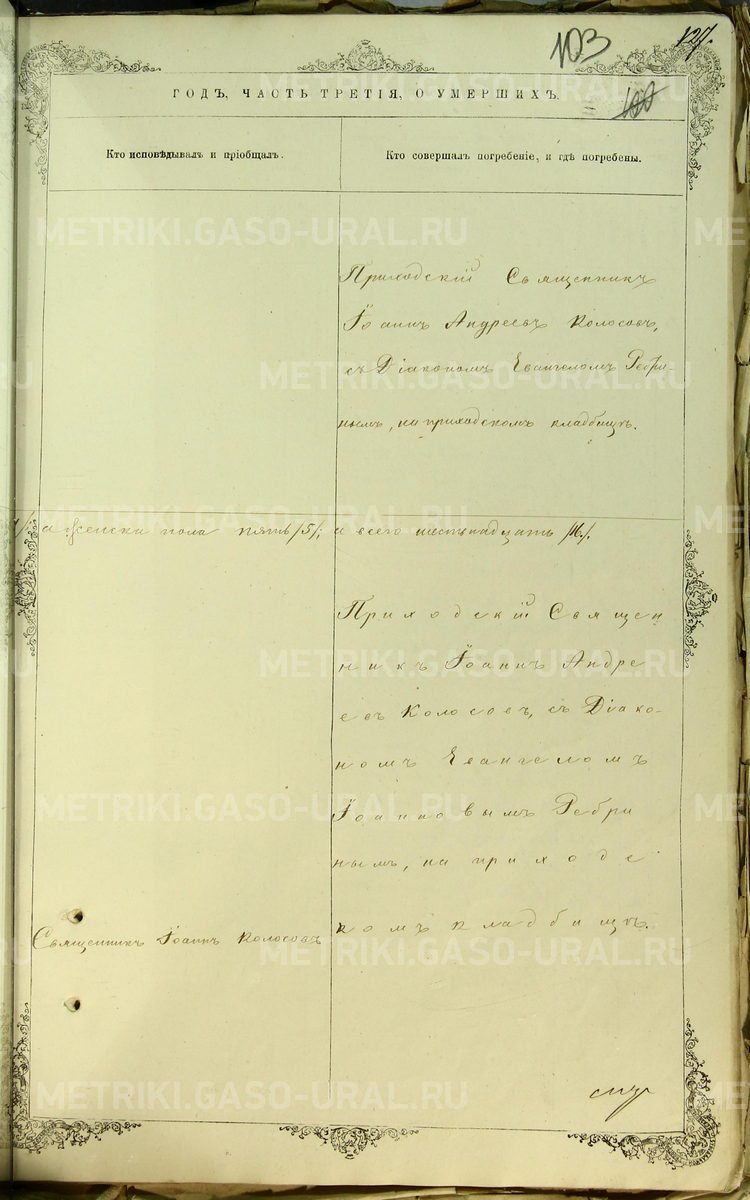 103
127.
100
ГОДЪ, ЧАСТЬ ТРЕТІЯ, О УМЕРШИХЪ.
Кто исповѣдывалъ и пріобщалъ.
Кто совершалъ погребеніе, и гдѣ погребены.
Приходскій Священникъ
Іоаннъ Андреевъ Колосовъ,
съ Діакономъ Евангеломъ Ребри-
нымъ, на приходскомъ кладбищѣ.
а женска пола пять /5/, а всего шестьнадцать /16/.
Приходскій Священ
никъ Іоаннъ Андре
евъ Колосовъ, съ Діако-
номъ Евангеломъ
Іоанновымъ Ребри
нымъ, на приходс
Священникъ Іоаннъ Колосовъ
комъ кладбищѣ.
METRIKI.GASO-URAL.RU